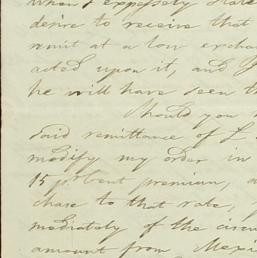 when I expressly state
desire to receive that
remit at a low excha
acted upon it, and I
he will have seen th
Should you
said remittance of £
modify my order in
15 p. cent premium, a
chase to that rate,
mediately of the circu
amount from Mexi